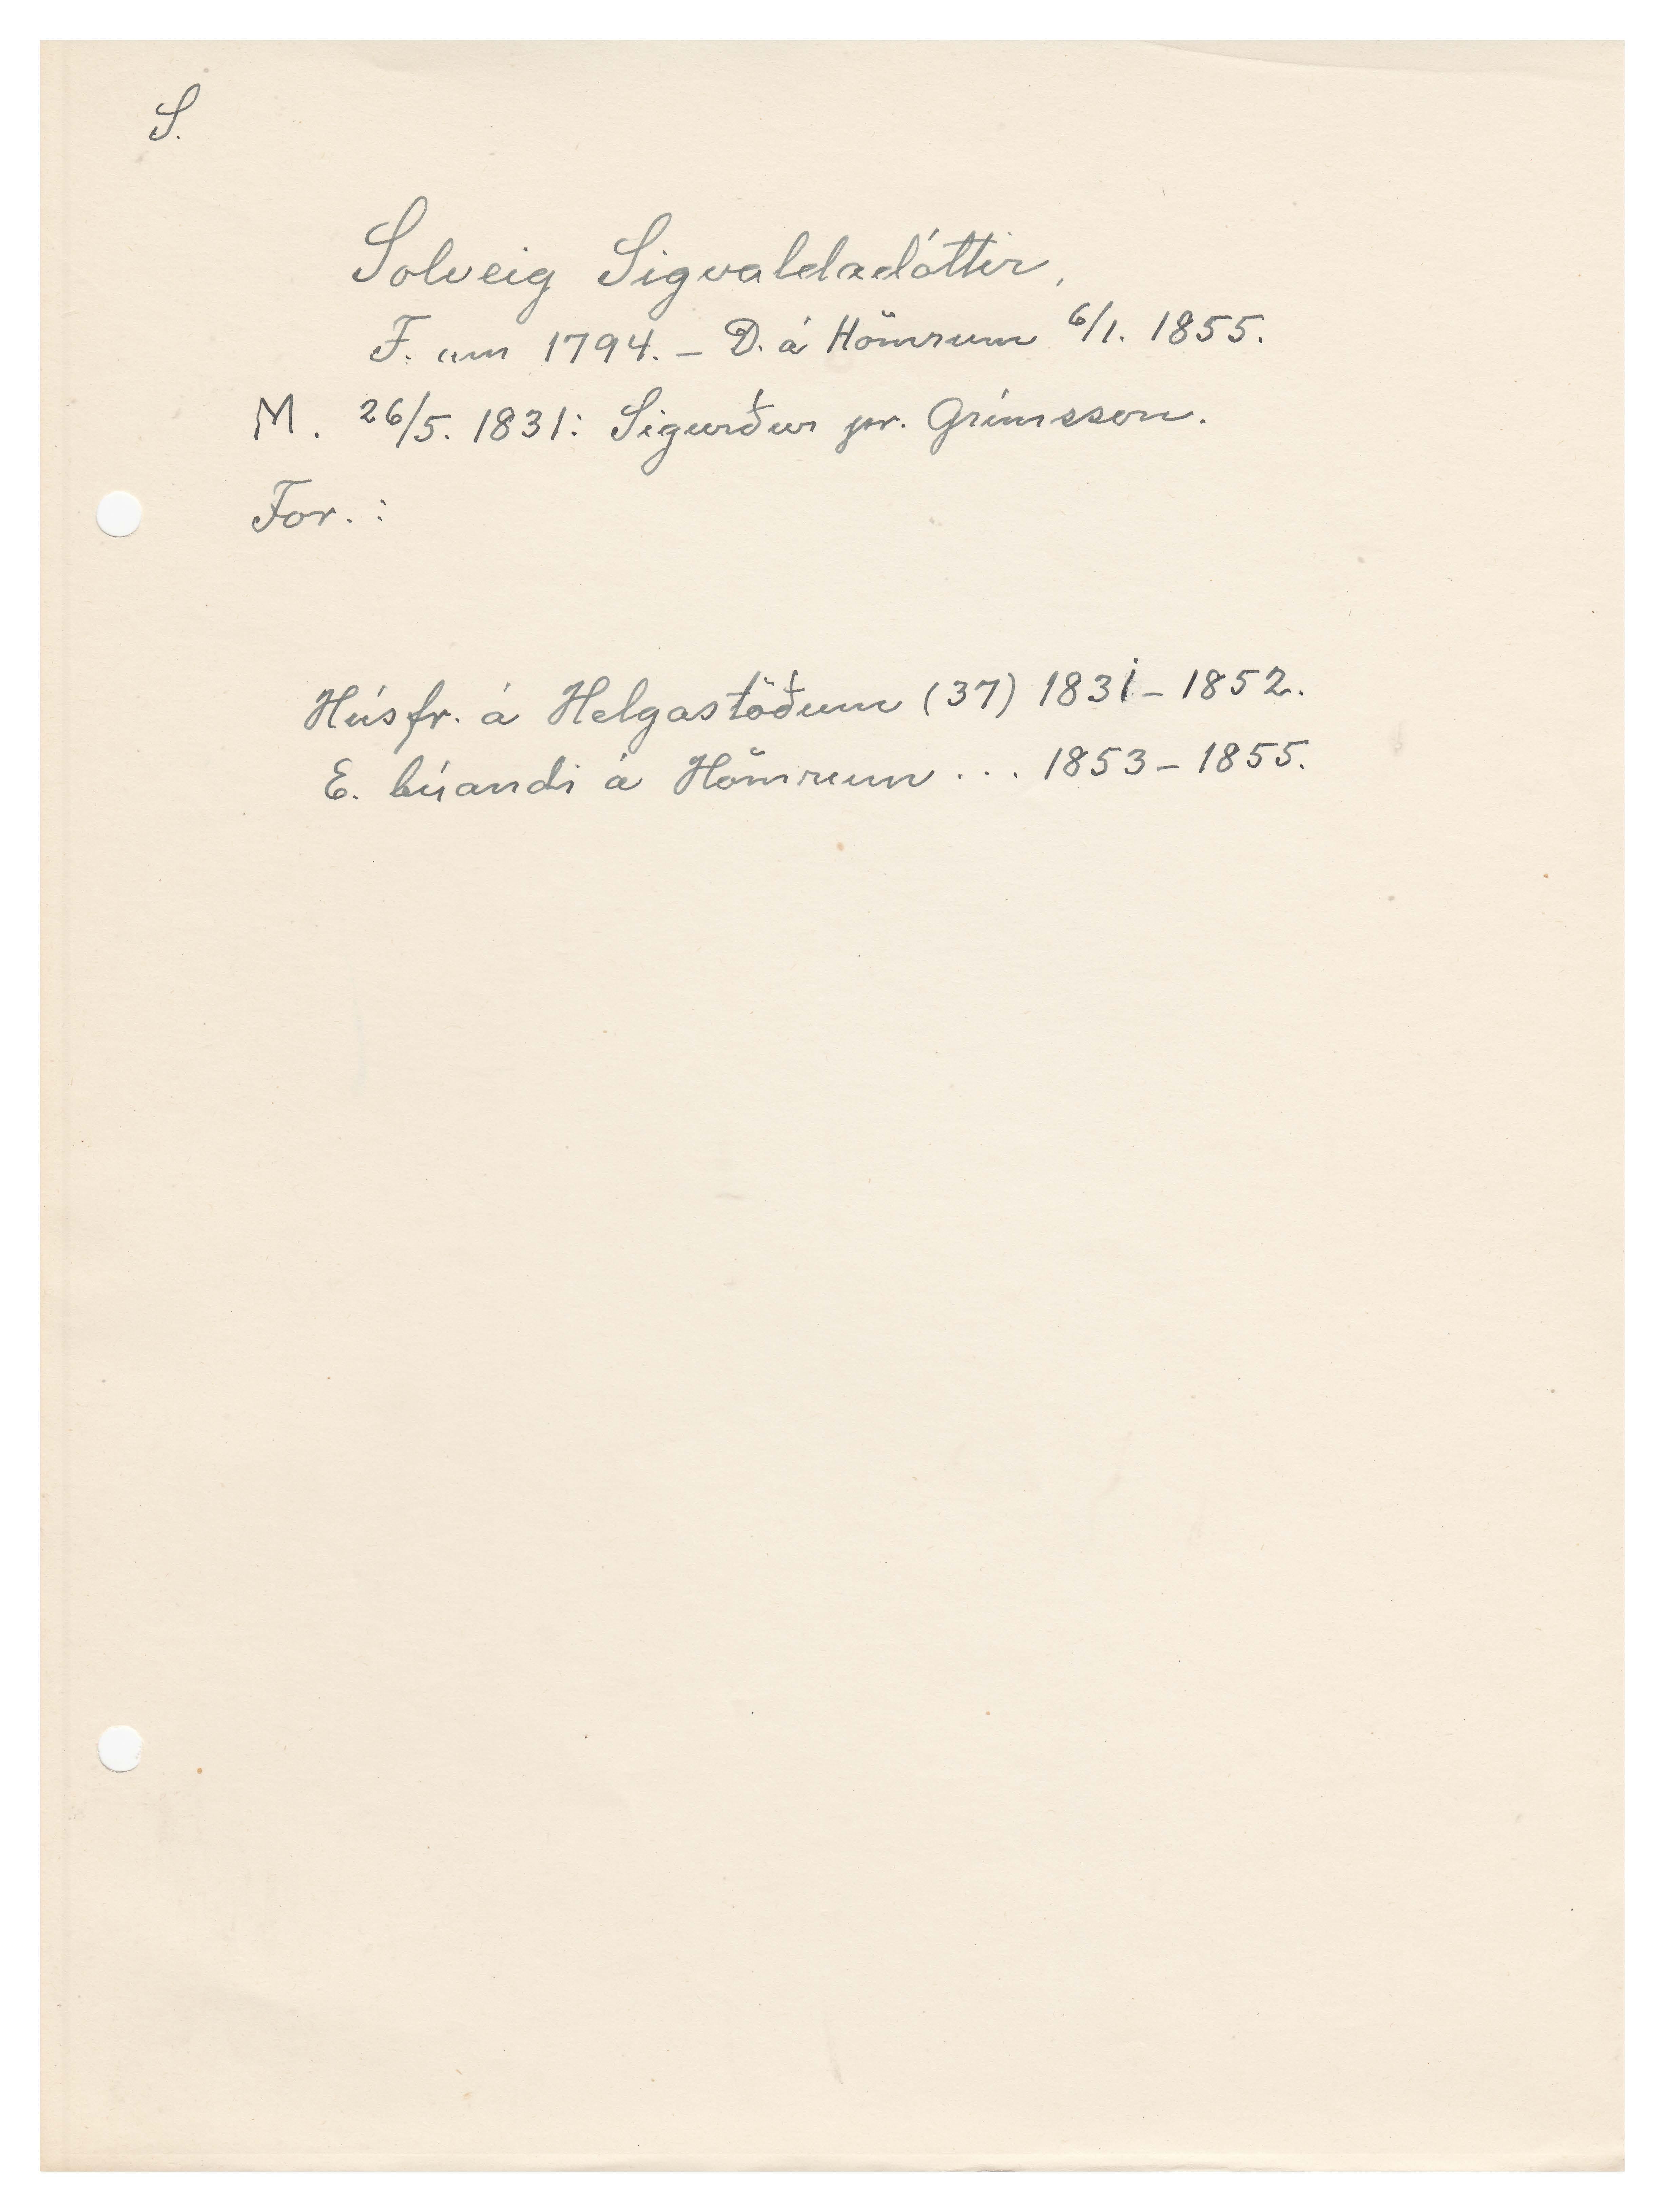 S.
Solveig Sigvaldadóttir,
F. um 1794. - D. á Hömrum 6/1. 1855.
M. 26/5. 1831: Sigurður pr. Grímsson.
For. :
Húsfr. á Helgastöðum (37) 1831 - 1852.
E. búandi á Hömrum ... 1853 - 1855.